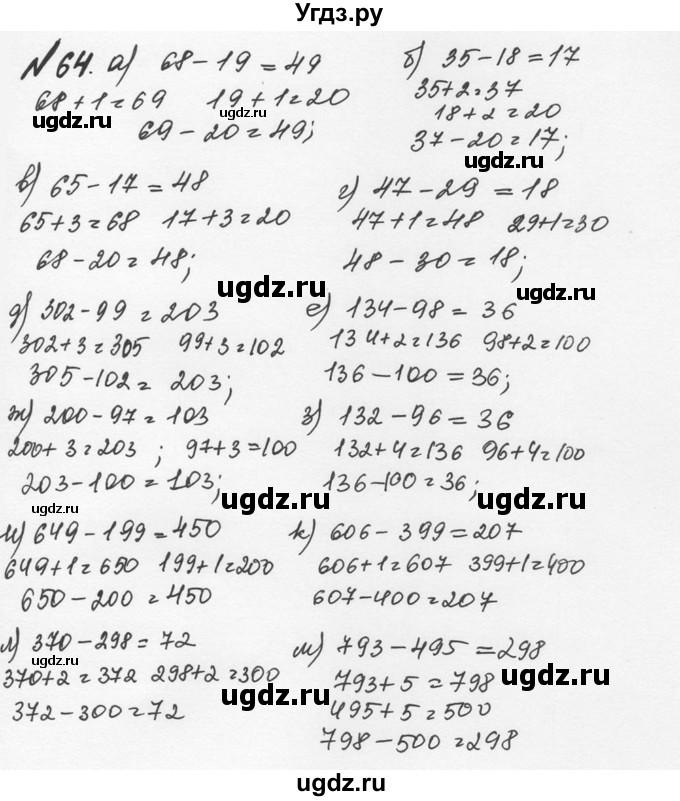 Угдз.ру
№64. а) 68-19=49
68+1=69 19+1=20
69-20=49;
б) 35-18=17
35+2=37
18+2=20
37-20=17;
в) 65-17=48
65+3=68 17+3=20
68-20=48;
г) 47-29=18
47+1=48 29+1=30
48-30=18;
д) 302-99=203
302+3=305 99+3=102
305-102=203;
е) 134-98=36
134+2=136 98+2=100
136-100=36;
ж) 200-97=103
200+3=203; 97+3=100
203-100=103;
з) 132-96=36
132+4=136 96+4=100
136-100=36;
и) 649-199=450
649+1=650 199+1=200
650-200=450
к) 606-399=207
606+1=607 399+1=400
607-400=207
л) 370-298=72
370+2=372 298+2=300
372-300=72
м) 793-495=298
793+5=798
495+5=500
798-500=298
ugdz.ru
ugdz.ru
ugdz.ru
ugdz.ru
ugdz.ru
ugdz.ru
ugdz.ru
ugdz.ru
ugdz.ru
ugdz.ru
ugdz.ru
ugdz.ru